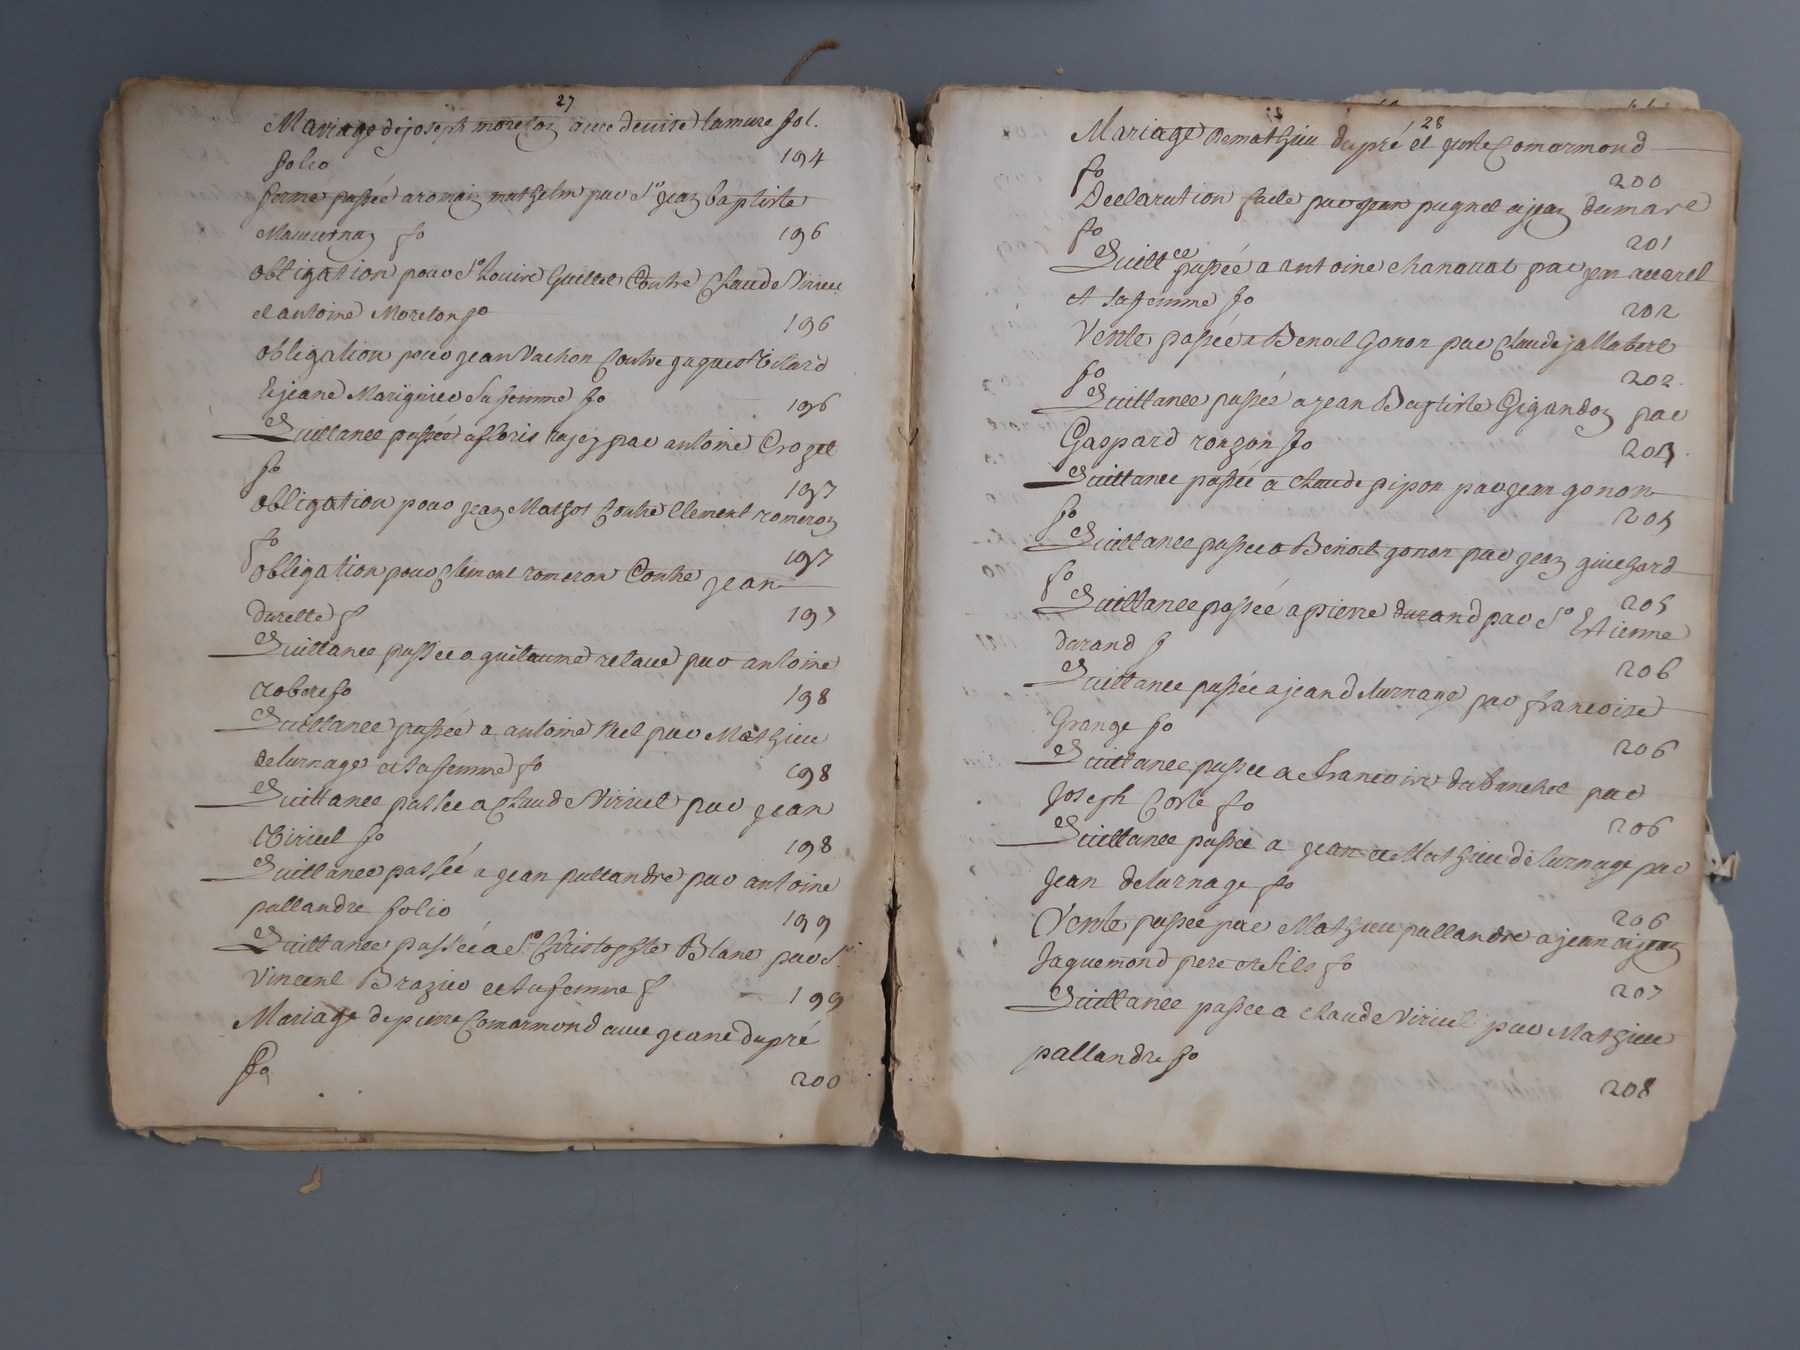 27
Mariage de joseph morelon avec denise lamure fol.
folio 194
ferme passée a romain mathelin par Sr jean baptiste
fo 196
obligation pour Sr Guillet Contre Claude Viricel
et antoine Morelon fo 196
obligation pour jean Vachon Contre jaques
& jeane Marignier sa femme fo 196
Quittance passée a floris par antoine Crozet
fo 197
obligation pour jean Mathos Contre Clement romeron
fo 197
obligation pour Clement romeron Contre jean
durette f 197
Quittance passée a guilaume retaud par antoine
robert fo 198
Quittance passée a antoine par Mathieu
delurnage et sa femme fo 198
Quittance passée a Claude Viricel par jean
Viricel fo 198
Quittance passée a jean pallandre par antoine
pallandre folio 199
Quittance passée a Sr Christophle Blanc par Sr
Vincent Brazier et sa femme f 199
Mariage de pierre Comarmond avec jeane dupré
fo 200
28
Mariage de mathieu dupré et Comarmond
fo 200
Declaration faite par jean pugnet a jean dumare
fo 201
Quittce passée a antoine chanavat par jean
et sa femme fo 202
Vente passée a Benoit Gonon par Claude jallabert
fo 202
Quittance passée a jean Baptiste Gigandon par
Gaspard ronzon fo
Quittance passée a Claude pipon par jean gonon
fo 205
Quittance passée a Benoit gonon par jean guichard
fo 205
Quittance passée a pierre durand par Sr Estienne
durand f 206
Quittance passée a jean delurnage par francoise
Grange fo 206
Quittance passée a francoise dubanchet par
Joseph Coste fo 206
Quittance passée a jean et Mathieu delurnage par
jean delurnage fo 206
Vente passée par Mathieu pallandre a jean & jean
Jaquemond pere et fils fo 207
Quittance passée a Claude Viricel par Mathieu
pallandre fo 208